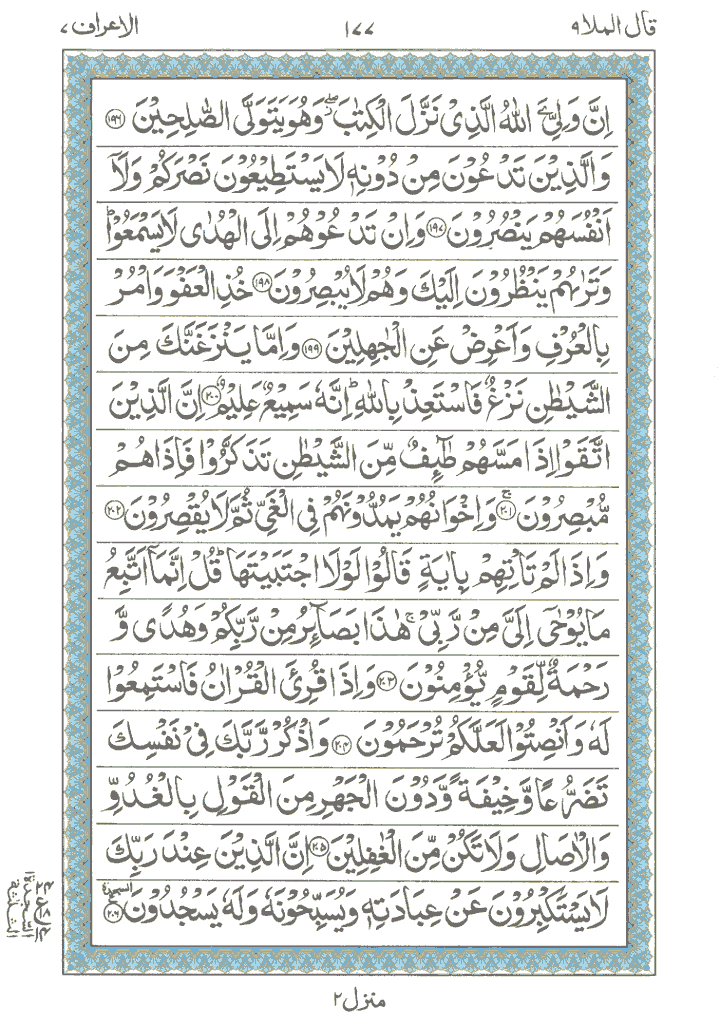 قال الملا ٩ ١٧٧ الاعراف ٧
اِنَّ وَلِیِّ ےَ اللّٰهُ الَّذِیْ نَزَّلَ الْكِتٰبَ ۖ٘ وَهُوَ یَتَوَلَّی الصّٰلِحِیْنَ ﴿۱۹۶﴾
وَالَّذِیْنَ تَدْعُوْنَ مِنْ دُوْنِهٖ لَا یَسْتَطِیْعُوْنَ نَصْرَكُمْ وَلَاۤ
اَنْفُسَهُمْ یَنْصُرُوْنَ ﴿۱۹۷﴾ وَاِنْ تَدْعُوْهُمْ اِلَی الْهُدٰی لَا یَسْمَعُوْا ؕ
وَتَرٰىهُمْ یَنْظُرُوْنَ اِلَیْكَ وَهُمْ لَا یُبْصِرُوْنَ ﴿۱۹۸﴾ خُذِ الْعَفْوَ وَاْمُرْ
بِالْعُرْفِ وَاَعْرِضْ عَنِ الْجٰهِلِیْنَ ﴿۱۹۹﴾ وَاِمَّا یَنْزَغَنَّكَ مِنَ
الشَّیْطٰنِ نَزْغٌ فَاسْتَعِذْ بِاللّٰهِ ؕ اِنَّهٗ سَمِیْعٌ عَلِیْمٌ ﴿۲۰۰﴾ اِنَّ الَّذِیْنَ
اتَّقَوْا اِذَا مَسَّهُمْ طٰٓىِٕفٌ مِّنَ الشَّیْطٰنِ تَذَكَّرُوْا فَاِذَا هُمْ
مُّبْصِرُوْنَ ۚ﴿۲۰۱﴾ وَاِخْوَانُهُمْ یَمُدُّوْنَهُمْ فِی الْغَیِّ ثُمَّ لَا یُقْصِرُوْنَ ﴿۲۰۲﴾
وَاِذَا لَمْ تَاْتِهِمْ بِاٰیَةٍ قَالُوْا لَوْلَا اجْتَبَیْتَهَا ؕ قُلْ اِنَّمَاۤ اَتَّبِعُ
مَا یُوْحٰۤی اِلَیَّ مِنْ رَّبِّیْ ۚ هٰذَا بَصَآىِٕرُ مِنْ رَّبِّكُمْ وَهُدًی وَّ
رَحْمَةٌ لِّقَوْمٍ یُّؤْمِنُوْنَ ﴿۲۰۳﴾ وَاِذَا قُرِئَ الْقُرْاٰنُ فَاسْتَمِعُوْا
لَهٗ وَاَنْصِتُوْا لَعَلَّكُمْ تُرْحَمُوْنَ ﴿۲۰۴﴾ وَاذْكُرْ رَّبَّكَ فِیْ نَفْسِكَ
تَضَرُّعًا وَّخِیْفَةً وَّدُوْنَ الْجَهْرِ مِنَ الْقَوْلِ بِالْغُدُوِّ
وَالْاٰصَالِ وَلَا تَكُنْ مِّنَ الْغٰفِلِیْنَ ﴿۲۰۵﴾ اِنَّ الَّذِیْنَ عِنْدَ رَبِّكَ
لَا یَسْتَكْبِرُوْنَ عَنْ عِبَادَتِهٖ وَیُسَبِّحُوْنَهٗ وَلَهٗ یَسْجُدُوْنَ ﴿۲۰۶﴾ السجدة
منزل ٢